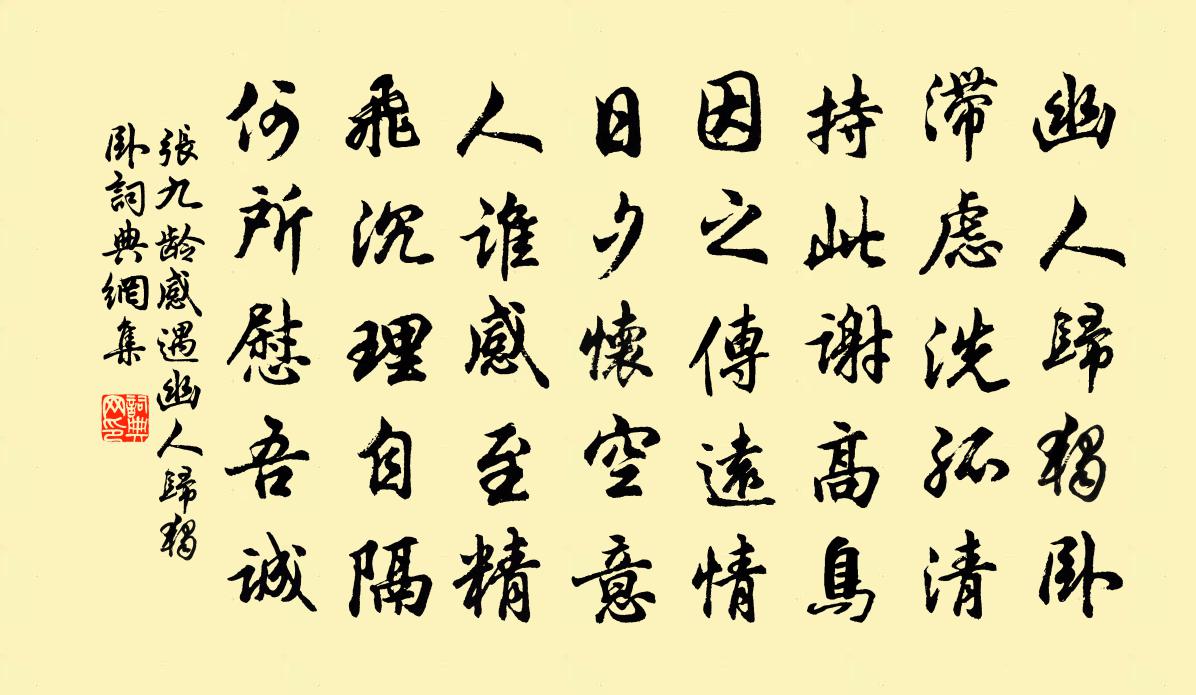 幽人歸獨卧
滞慮洗孤清
持此謝高鳥
因之傳遠情
日夕懷空意
人誰感至精
飛沉理自隔
何所慰吾誠
張九龄感遇幽人歸獨
卧詞典網集
詞典
网印